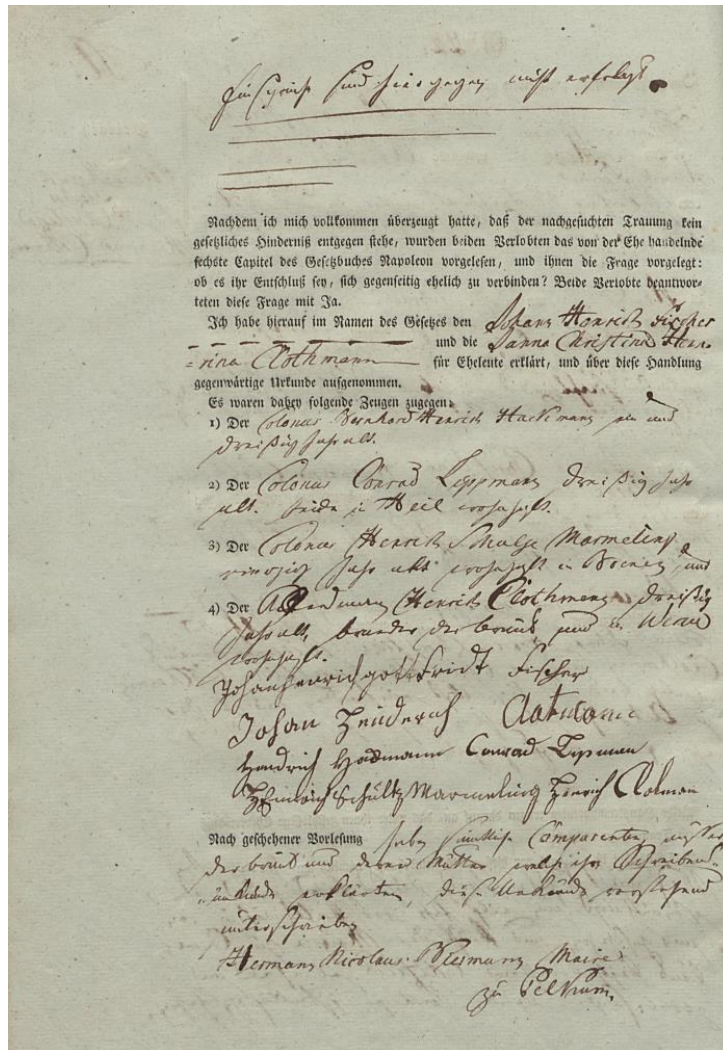 Einsprüche sind hiergegen nicht erfolgt.
Nachdem ich mich vollkommen überzeugt hatte, daß der nachgesuchten Trauung kein
gesetzliches Hinderniß entgegen stehe, wurden beiden Verlobten das von der Ehe handelnde
sechste Capitel des Gesetzbuches Napoleon vorgelesen, und ihnen die Frage vorgelegt:
ob es ihr Entschluß sey, sich gegenseitig ehelich zu verbinden? Beide Verlobte beantwor-
teten diese Frage mit Ja.
Ich habe hierauf im Namen des Gesetzes den Johann Henrich Fischer
und die Christina
Clothmann für Eheleute erklärt, und über diese Handlung
gegenwärtige Urkunde aufgenommen.
Es waren dabey folgende Zeugen zugegen:
1) Der Colonus Bernhard Henrich Hackmann ein und
dreißig Jahr alt.
2) Der Colonus Conrad Lippmann dreißig Jahr
alt. beide in Heil wohnhaft.
3) Der Colonus Henrich Schulze Marmeling
vierzig Jahr alt wohnhaft in und
4) Der Henrich Clothmann dreißig
Jahr alt, bruder der braut und in Werne
wohnhaft.
Johan henrich gottfridt Fischer
Johan
Hendrich Hackmann Conrad Lipman
Heinrich Schültz Marmeling Henrich
Nach geschehener Vorlesung haben sämtliche Comparenten, ausser
der braut und deren Mutter welche ihre Schreibens-
unkunde erklärten, diese Urkunde vorstehend
unterschrieben
Hermann Nicolaus Biermann Maire
zu Pelkum.